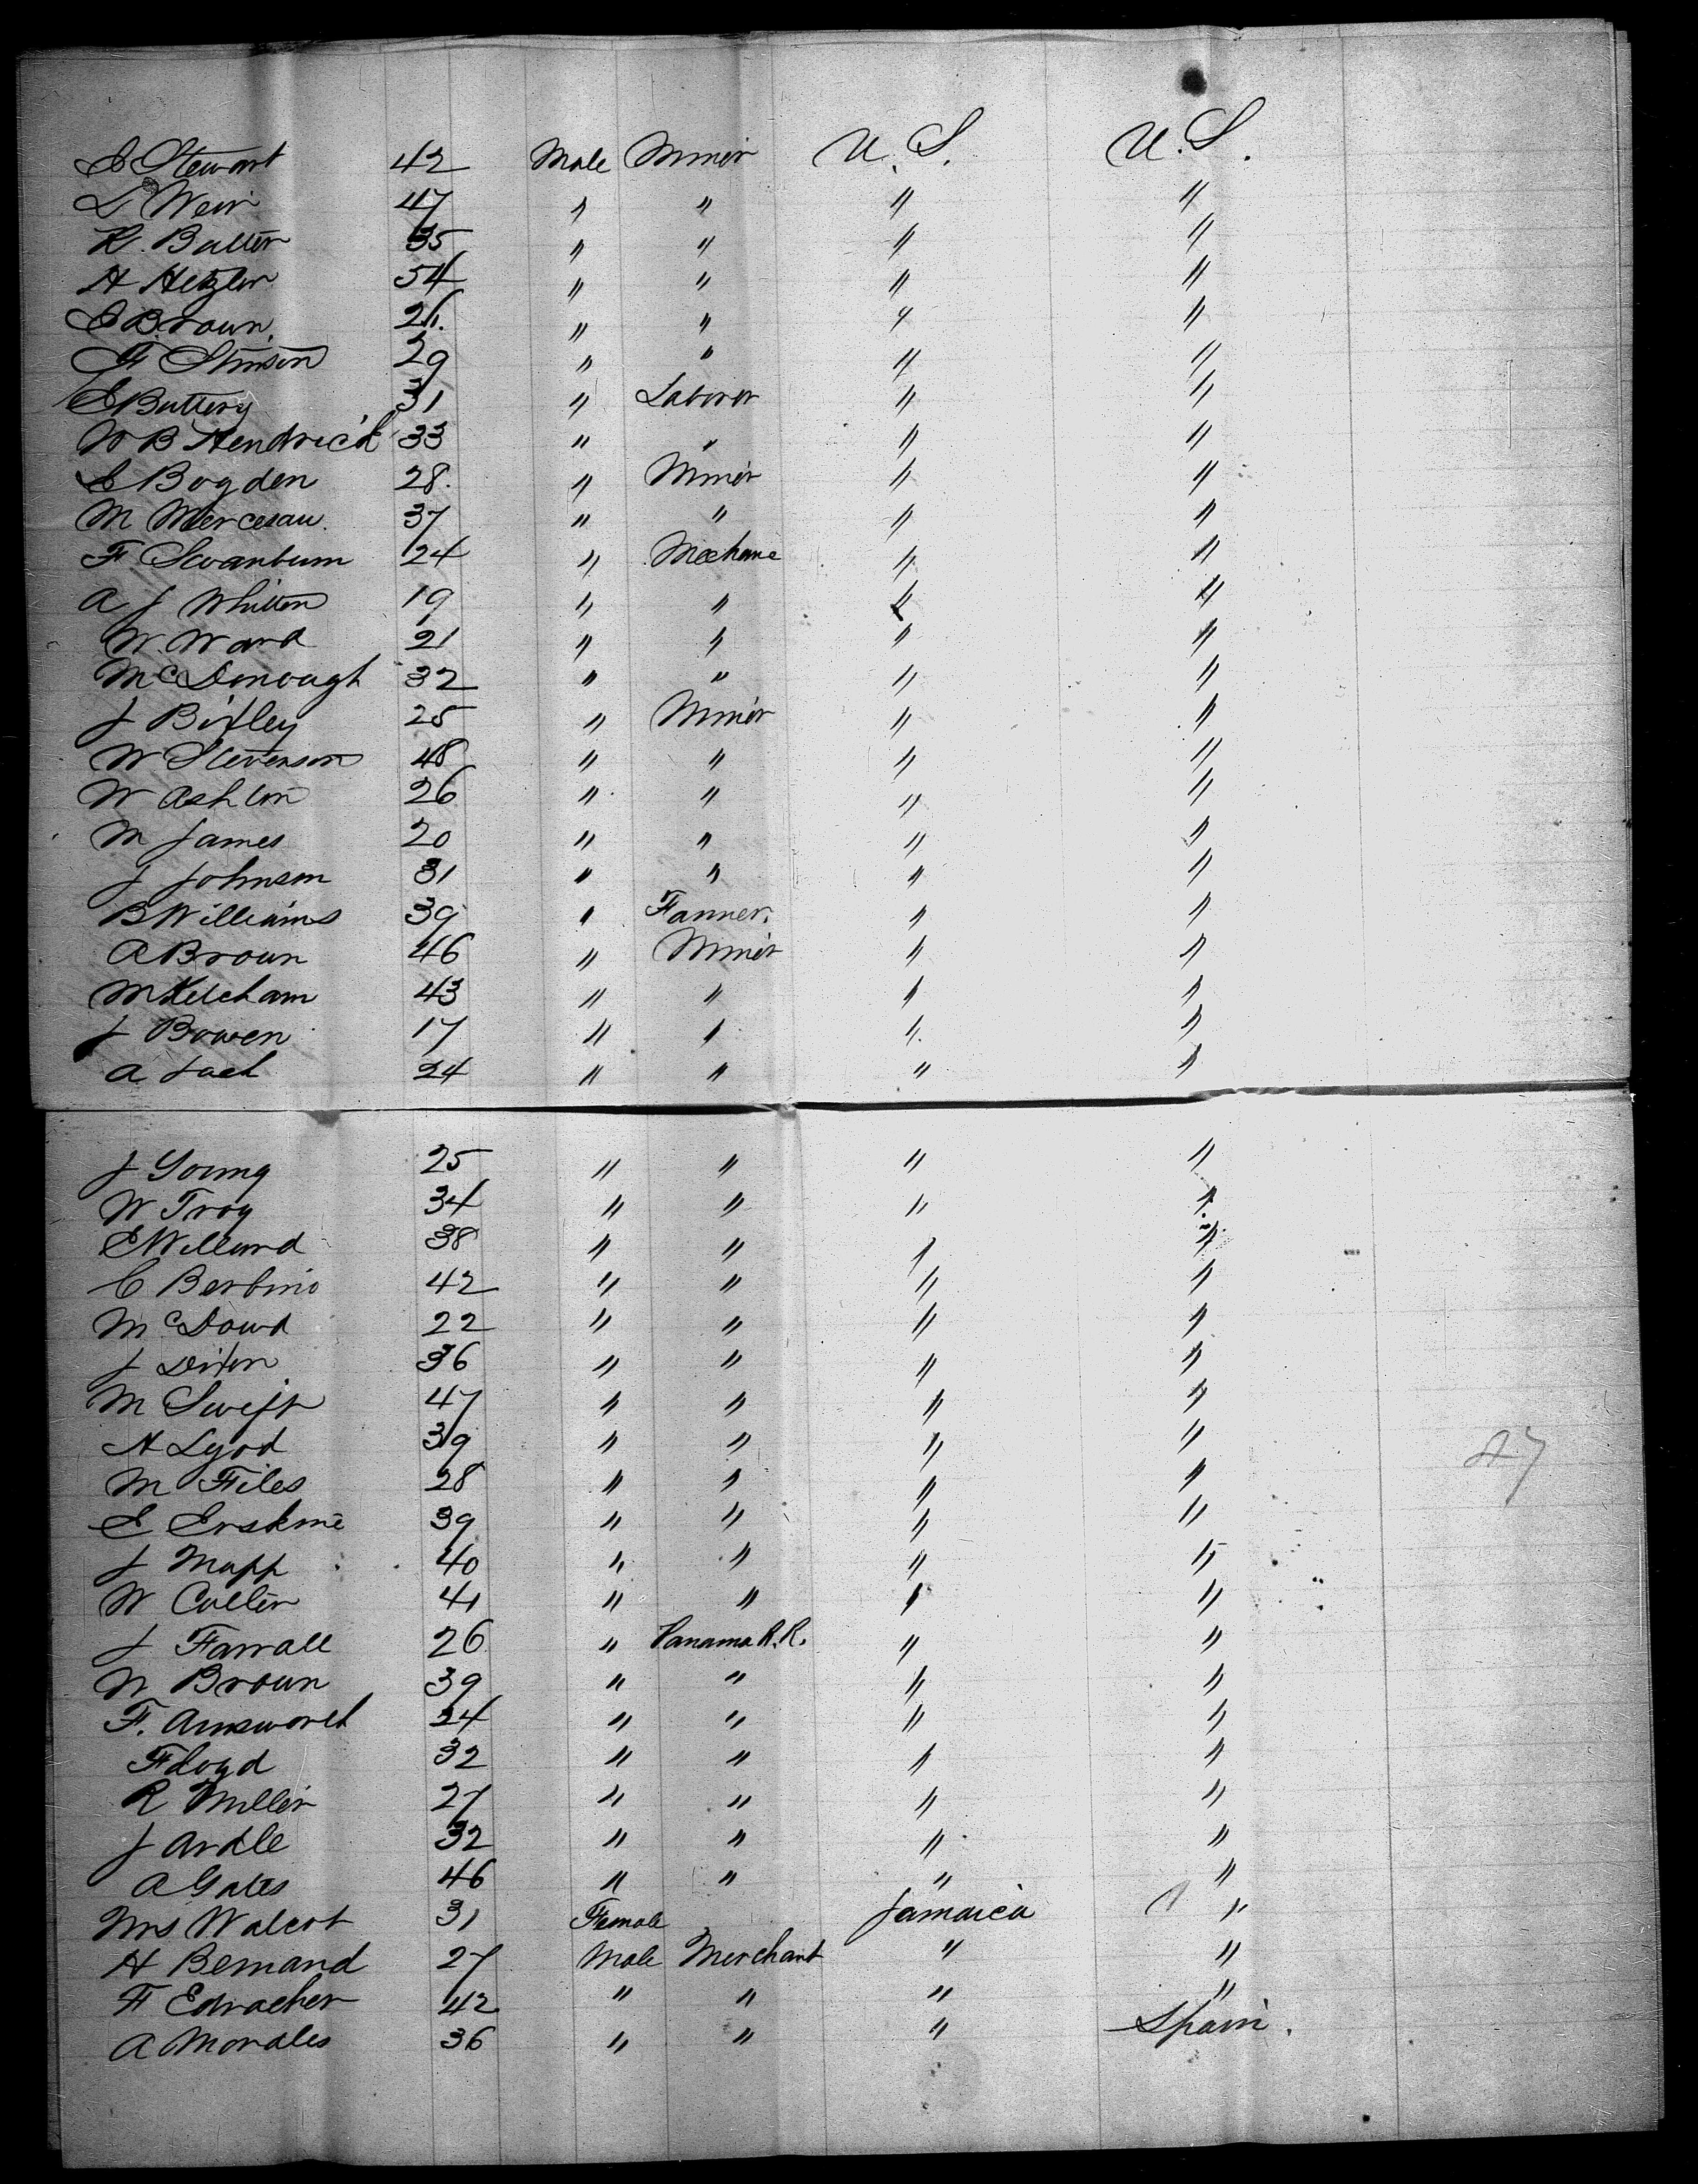 E Stewart 42 Male Miner U.S. U.S.
L Weir 47 " " " "
R. Butter 35 " " " "
H Hetzler 54 " " " "
E Brown 26. " " " "
F Stinson 29 " " " "
E Buttery 31 " Laborer " "
W B Hendrick 33 " " " "
E Bogden 28. " Miner " "
M Mercesau. 37 " " " "
F Swanbum 24 " Mechanic " "
A J Whitten 19 " " " "
W. Ward 21 " " " "
McDonough 32 " " " "
J Bixley 25 " Miner " "
W Stevenson 48 " " " "
W Ashton 26 " " " "
M James 20 " " " "
J Johnson 31 " " " "
B Williams 39 " Farmer. " "
A Brown 46 " Miner " "
M Ketcham 43 " " " "
J Bowen 17 " " " "
A Jack 24 " " " "
J Young 25 " " " "
W Troy 34 " " " "
E Willard 38 " " " "
C Berbino 42 " " " "
McDowd 22 " " " "
J Dixon 36 " " " "
M Swift 47 " " " "
A Lyod 39 " " " "
M Files 28 " " " "
E Erskine 39 " " " "
J Mapp 40 " " " "
W Cullen 41 " " " "
J Farrall 26 " Panama R.R. " "
W Brown 39 " " " "
F. Ainsworth 24 " " " "
Floyd 32 " " " "
R Miller 27 " " " "
J Ardle 32 " " " "
A Gates 46 " " " "
Mrs Walcot 31 Female Jamaica "
H Bernand 27 Male Merchant " "
F Edracher 42 " " " "
A Morales 36 " " " Spain.